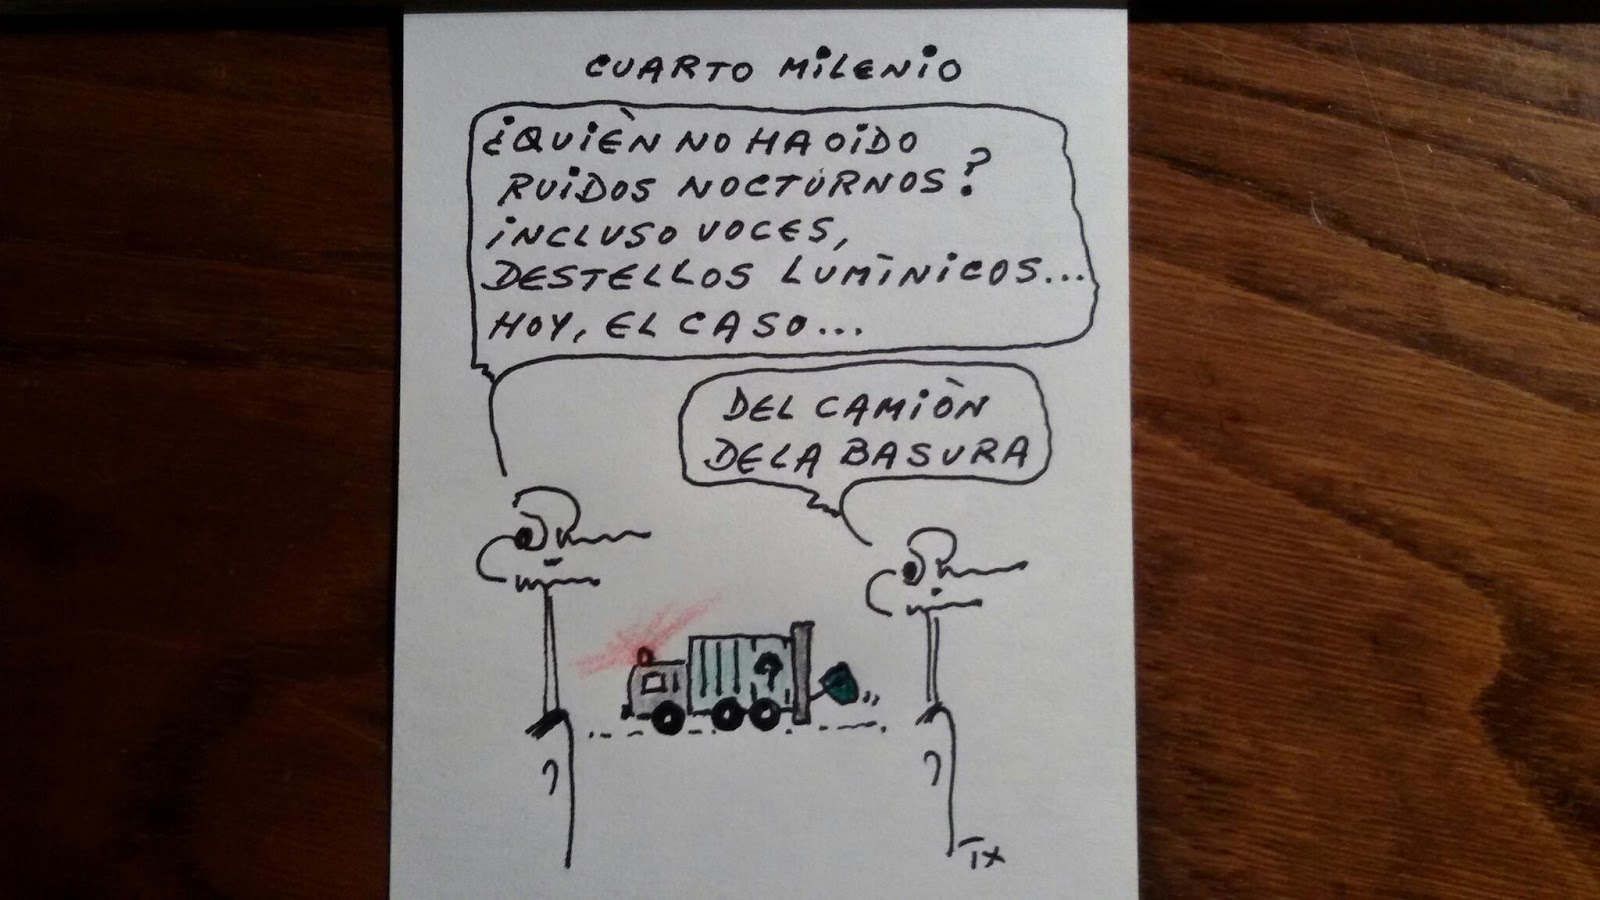 CUARTO MILENIO
¿QUIÈN NO HA OIDO
RUIDOS NOCTURNOS?
INCLUSO VOCES,
DESTELLOS LUMÌNICOS...
HOY, EL CASO...
DEL CAMIÒN
DE LA BASURA
TX